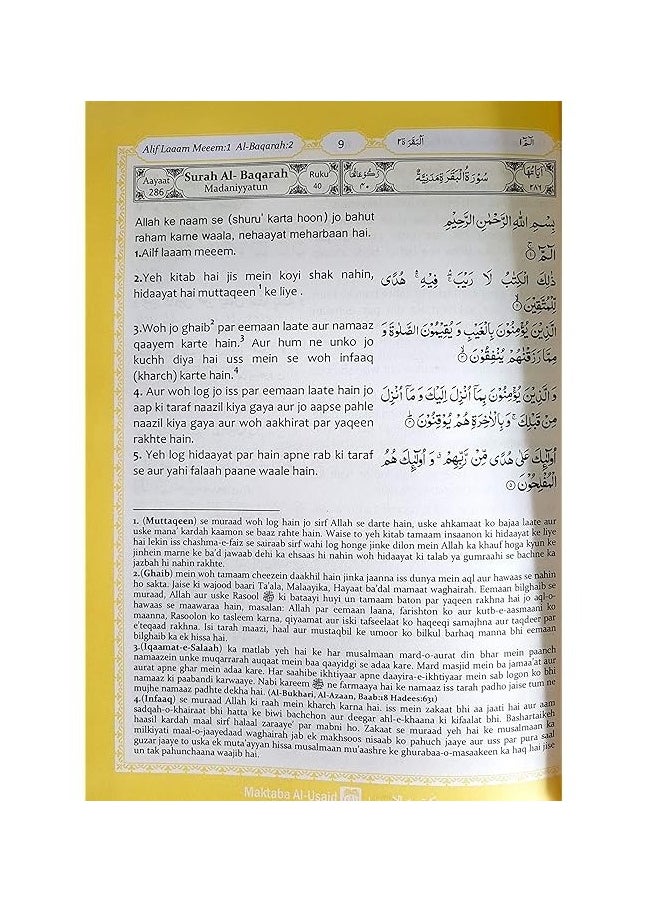 Alif Laaam Meeem:1 Al-Baqarah:2
9
اَلْبَقَرَة ٢
الٓمّٓ ١
Aayaat 286
Surah Al- Baqarah
Madaniyyatun
Ruku 40
رُكُوْعَاتُهَا ٤٠
سُوْرَةُ الْبَقَرَةِ مَدَنِيَّةٌ
اٰيَاتُهَا ٢٨٦
Allah ke naam se (shuru' karta hoon) jo bahut
raham karne waala, nehaayat meharbaan hai.
بِسْمِ اللّٰهِ الرَّحْمٰنِ الرَّحِيْمِ
1.Ailf laaam meeem.
الٓمّٓ ۝١
2.Yeh kitab hai jis mein koyi shak nahin,
hidaayat hai muttaqeen 1 ke liye .
ذٰلِكَ الْكِتٰبُ لَا رَيْبَ ۛ فِيْهِ ۛ هُدًى
لِّلْمُتَّقِيْنَ ۝٢
3.Woh jo ghaib2 par eemaan laate aur namaaz
qaayem karte hain.3 Aur hum ne unko jo
kuchh diya hai uss mein se woh infaaq
(kharch) karte hain.4
الَّذِيْنَ يُؤْمِنُوْنَ بِالْغَيْبِ وَ يُقِيْمُوْنَ الصَّلٰوةَ وَ
مِمَّا رَزَقْنٰهُمْ يُنْفِقُوْنَ ۝٣
4. Aur woh log jo iss par eemaan laate hain jo
aap ki taraf naazil kiya gaya aur jo aapse pahle
naazil kiya gaya aur woh aakhirat par yaqeen
rakhte hain.
وَالَّذِيْنَ يُؤْمِنُوْنَ بِمَاۤ اُنْزِلَ اِلَيْكَ وَ مَاۤ اُنْزِلَ
مِنْ قَبْلِكَ ۚ وَ بِالْاٰخِرَةِ هُمْ يُوْقِنُوْنَ ۝٤
5. Yeh log hidaayat par hain apne rab ki taraf
se aur yahi falaah paane waale hain.
اُولٰٓئِكَ عَلٰى هُدًى مِّنْ رَّبِّهِمْ ۙ وَ اُولٰٓئِكَ هُمُ
الْمُفْلِحُوْنَ ۝٥
1. (Muttaqeen) se muraad woh log hain jo sirf Allah se darte hain, uske ahkamaat ko bajaa laate aur
uske mana' kardah kaamon se baaz rahte hain. Waise to yeh kitab tamaam insaanon ki hidaayat ke liye
hai lekin iss chashma-e-faiz se sairaab sirf wahi log honge jinke dilon mein Allah ka khauf hoga kyun ke
jinhein marne ke ba'd jawaab dehi ka ehsaas hi nahin woh hidaayat ki talab ya gumraahi se bachne ka
jazbah hi nahin rakhte.
2.(Ghaib) mein woh tamaam cheezein daakhil hain jinka jaanna iss dunya mein aql aur hawaas se nahin
ho sakta. Jaise ki wajood baari Ta'ala, Malaayika, Hayaat ba'dal mamaat waghairah. Eemaan bilghaib se
muraad, Allah aur uske Rasool ﷺ ki bataayi huyi un tamaam baton par yaqeen rakhna hai jo aql-o-
hawaas se maawaara hain, masalan: Allah par eemaan laana, farishton ko aur kutb-e-aasmaani ko
maanna, Rasoolon ko tasleem karna, qiyaamat aur iski tafseelaat ko haqeeqi samajhna aur taqdeer par
e'teqaad rakhna. Isi tarah maazi, haal aur mustaqbil ke umoor ko bilkul barhaq manna bhi eemaan
bilghaib ka ek hissa hai.
3.(Iqaamat-e-Salaah) ka matlab yeh hai ke har musalmaan mard-o-aurat din bhar mein paanch
namaazein unke muqarrarah auqaat mein baa qaayidgi se adaa kare. Mard masjid mein ba jamaa'at aur
aurat apne ghar mein adaa kare. Har saahibe ikhtiyaar apne daayira-e-ikhtiyaar mein sab logon ko bhi
namaaz ki paabandi karwaaye. Nabi kareem ﷺ ne farmaaya hai ke namaaz iss tarah padho jaise tum ne
mujhe namaaz padhte dekha hai. (Al-Bukhari, Al-Azaan, Baab:18 Hadees:631)
4.(Infaaq) se muraad Allah ki raah mein kharch karna hai. iss mein zakaat bhi aa jaati hai aur aam
sadqah-o-khairaat bhi hatta ke biwi bachchon aur deegar ahl-e-khaana ki kifaalat bhi. Bashartaikeh
haasil kardah maal sirf halaal zaraaye' par mabni ho. Zakaat se muraad yeh hai ke musalmaan ka
milkiyati maal-o-jaayedaad waghairah jab ek makhsoos nisaab ko pahuch jaaye aur uss par pura saal
guzar jaaye to uska ek muta'ayyan hissa musalmaan mu'aashre ke ghurabaa-o-masaakeen ka haq hai jise
un tak pahunchaana waajib hai.
Maktaba Al-Usaid